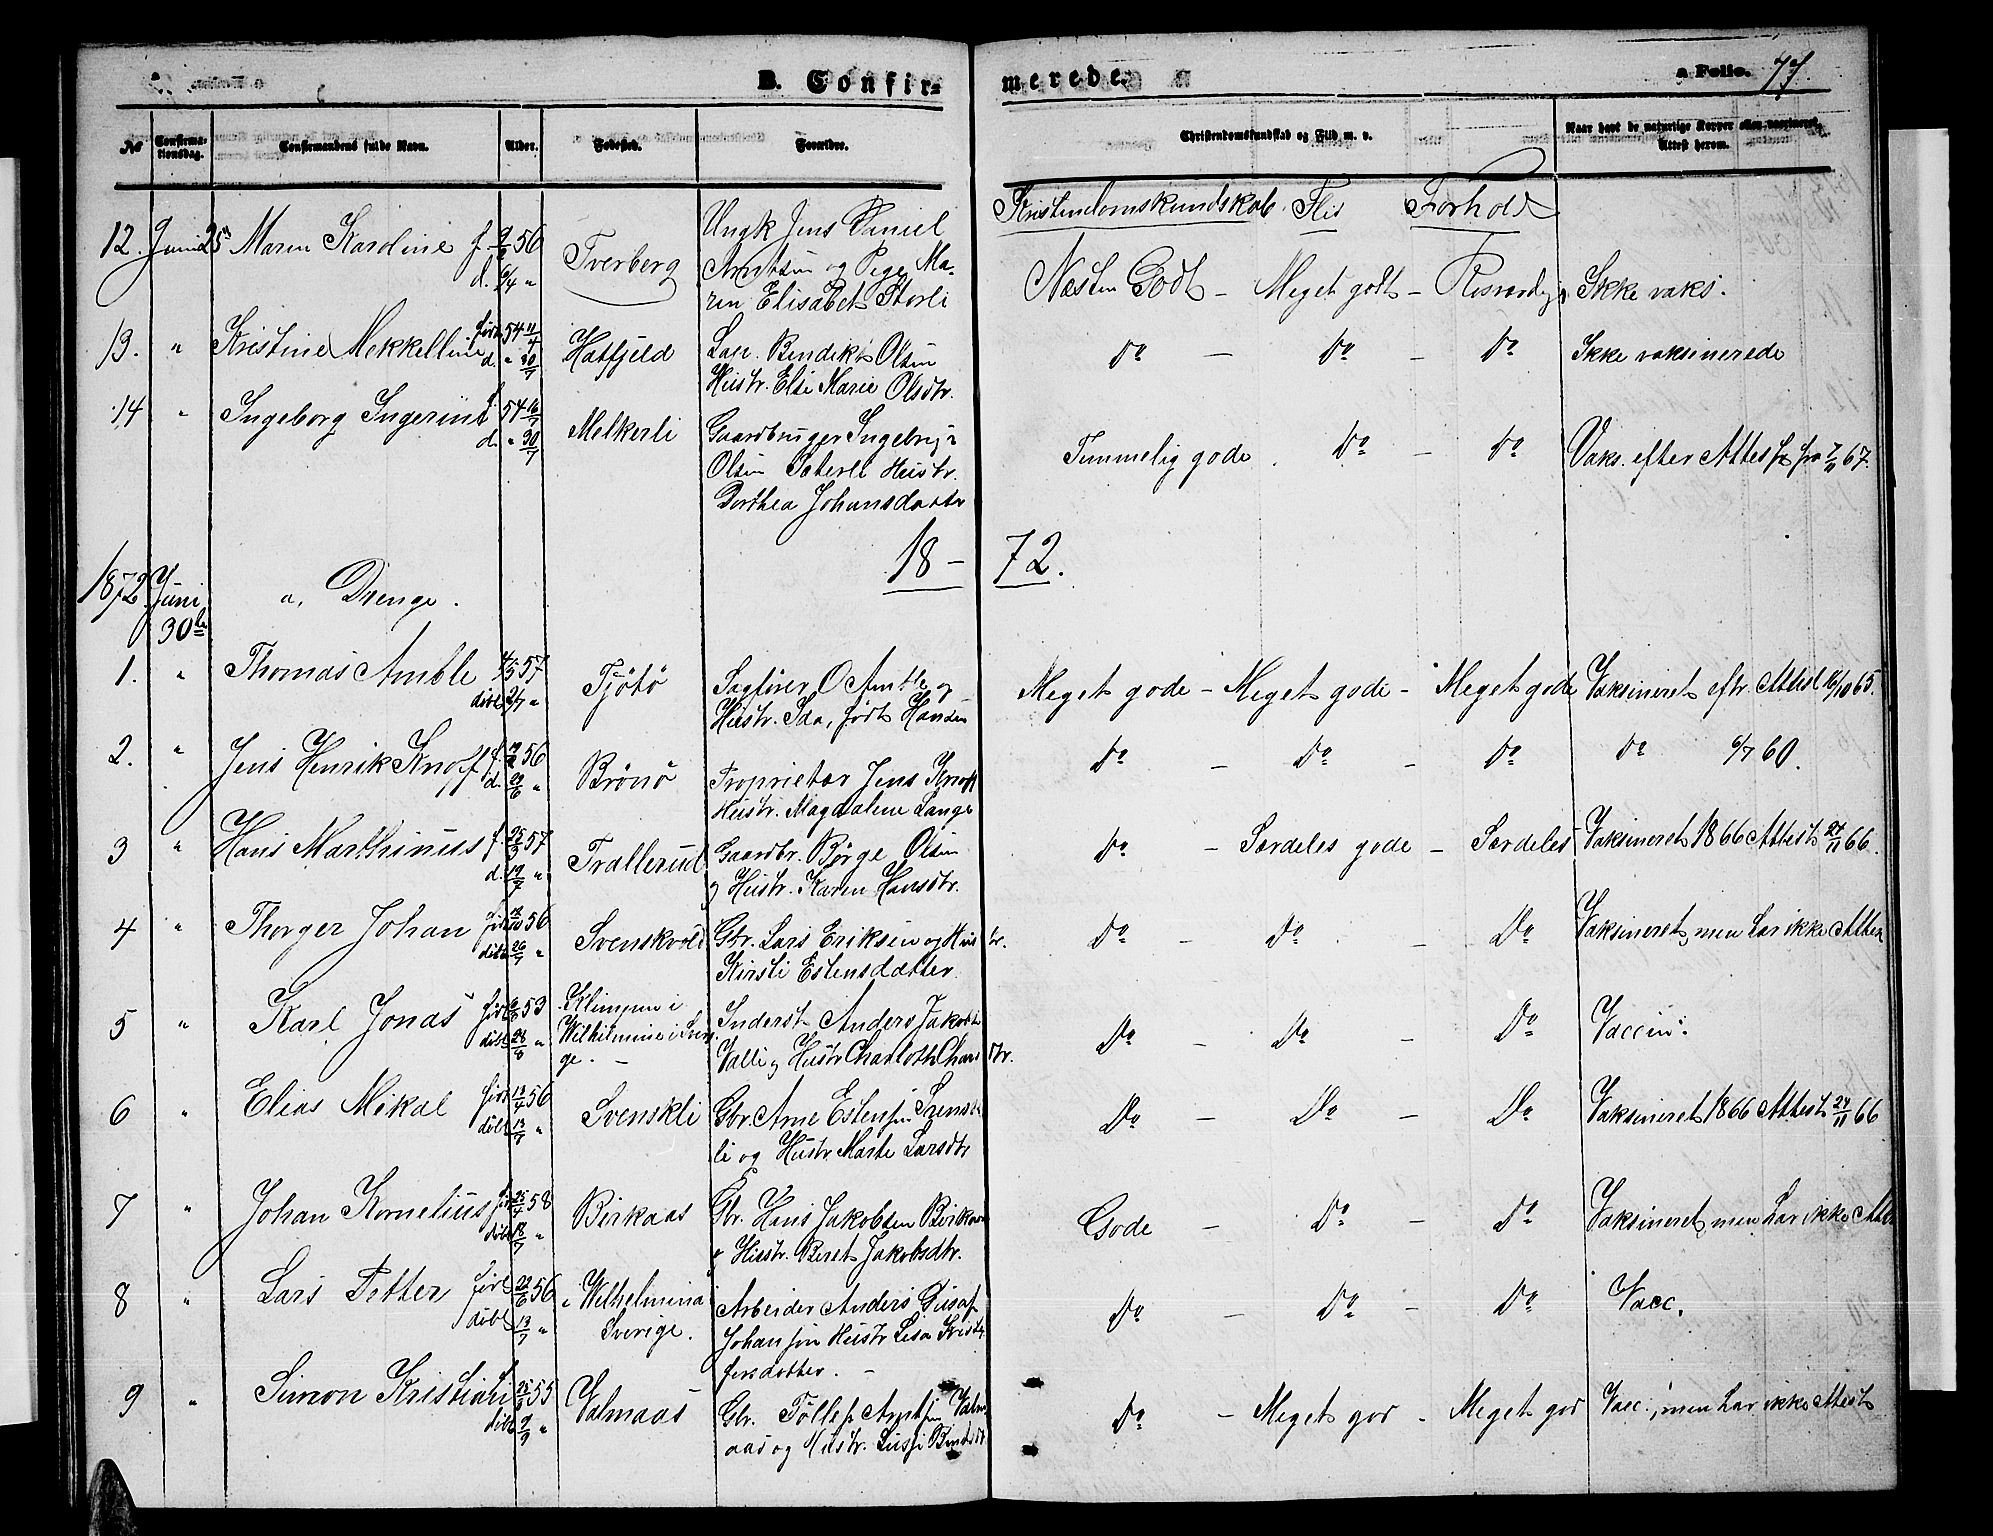 B. Confirmerede.
a Folio. 77.
No
Confirmationsdag.
Confirmandens fulde Navn.
Alder.
Fødested.
Forældre.
Christendomskundskab og Flid m. v.
Naar havt de naturlige Kopper eller vaccineret.
Attest herom.
Kristendomskundskab. Flid Forhold
12. Juni 25 Maren Karoline f. 56
d. 6/4 "
Tverberg
Ungk Jens Daniel
Arntsen og Pige Ma-
ren Elisabet Storli
Næsten Godt - Meget godt - Ikke vaks.
13. " Kristine Mekkelline født 54 11/4
d. " 30/7
Hatfjeld
Lap. Bendikt Olsen
Hustr. Else Marie Olsdtr.
Do - Do - Do Ikke vaksinerede
14 " Ingeborg Ingerine f. 54 16/7
d. " 30/7
Melkerli
Gaardbruger Ingebrigt
Olsen Hustr.
Dorthea Johansdatter
Temmelig gode. Do - Do Vaks. efter Attest fra 7/11 67.
18-72.
1872. Juni
30te
a, Drenge.
1. " Thomas Amble 4/5 57
døbt 2/7 "
Tjøtø
Sagfører O Amble og
Hustr. Ida, født Hansen
Meget gode - Meget gode - Meget gode Vaksineret eftr. Attest 16/10 65.
2. " Jens Henrik Knoff f. 56
d. 29/6 "
Brønø
Proprietær Jens Knoff
Hustr. Magdalene Lange
Do - Do - Do Do 6/7 60.
3 " Hans Marthinus f. 25/3 57
d. 19/7 "
Trallerud
Gaardbr. Børge Olsen
og Hustr. Karen Hansdtr.
Do - Særdeles gode - Særdeles Vaksineret 1866 Attest 24/11 66.
4 " Thorger Johan født 18/10 56
døbt 26/7 "
Svenskvold
Gbr. Lars Eriksen og Hustr.
Kirsti Estensdatter
Do - Do - Do Vaksineret, men har ikke Attest
5 " Karl Jonas født 53
døbt 28/8 "
Klimpen i
Wilhelmine i Sveri-
ge. -
Inderst Anders Jakobs
Valli og Hustr Charloth Charsdtr.
Do - Do - Do Vaccin:
6 " Elias Mikal født 12/4 56
døbt 13/7 "
Svenskli
Gbr. Arne Estensen Svensk
li og Hustr. Marte Larsdtr
Do - Do - Do Vaksineret 1866 Attest 24/11 66
7 " Johan Kornelius før 25/4 58
døbt 18/7 "
Birkaas
Gbr. Hans Jakobsen Birkaas
og Hustr. Beret Jakobsdtr.
Gode - Do - Do Vaksineret, men har ikke Attest
8 " Lars Petter født 22/6 56
døbt 13/7 "
Wilhelmina
Sverige.
Arbeider Anders Gustaf
Johansen Hustr Lisa Kristo
fersdatter. -
Do - Do - Do Vacc.
9 " Simon Kristian 55
døbt 9/9 "
Valmaas
Gbr. Tøllef Arntsen Valm
aas og Hustr.
Do - Meget god - Meget god Vacc., men har ikke Attest